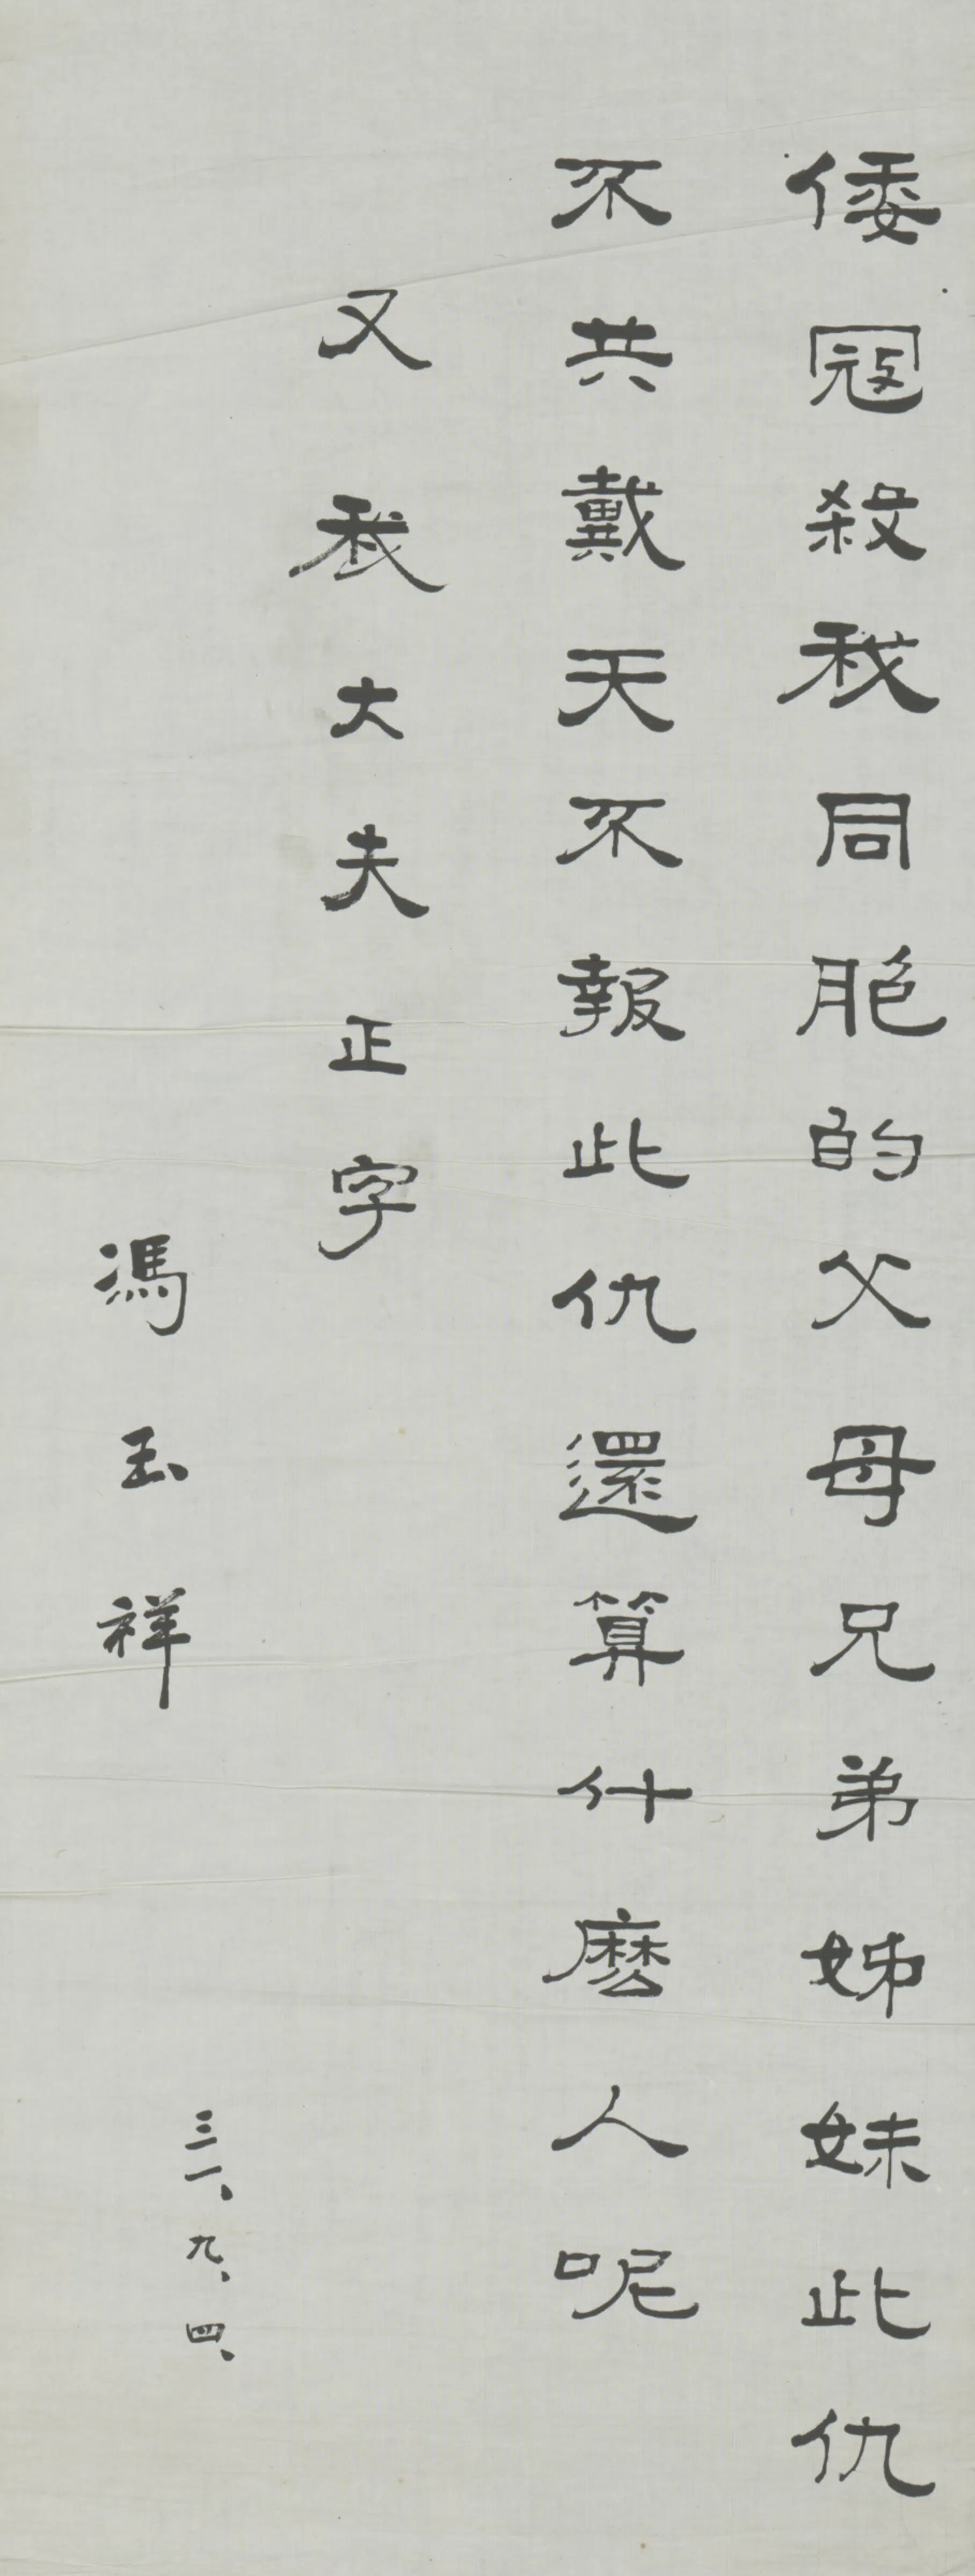 倭寇殺我同胞的父母兄弟姊妹此仇
不共戴天不報此仇還算什麽人呢
又我大夫正字
馮玉祥
三一、九、四、